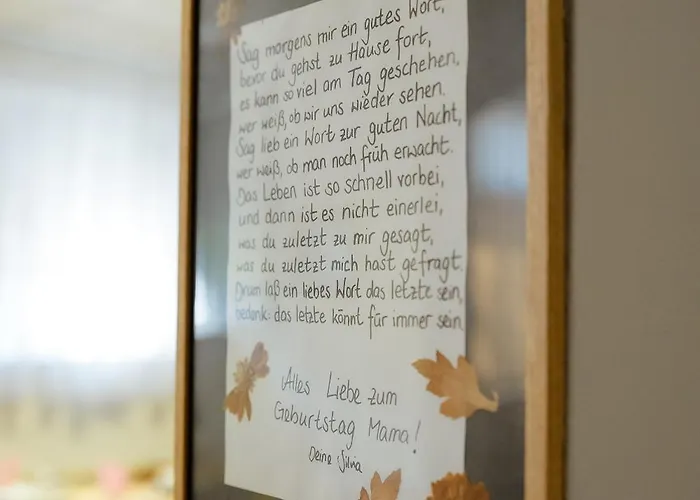 Sag morgens mir ein gutes Wort,
bevor du gehst zu Hause fort,
es kann so viel am Tag geschehen,
wer weiß, ob wir uns wieder sehen.
Sag lieb ein Wort zur guten Nacht,
wer weiß, ob man noch früh erwacht.
Das Leben ist so schnell vorbei,
und dann ist es nicht einerlei,
was du zuletzt zu mir gesagt,
was du zuletzt mich hast gefragt.
Drum laß ein liebes Wort das letzte sein,
bedenk: das letzte könnt für immer sein.
Alles Liebe zum
Geburtstag Mama!
Deine Silvia